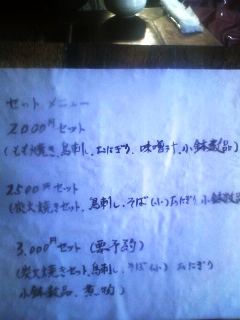 セット メニュー
2000円セット
(もも焼き、鳥刺し、おにぎり、味噌汁、小鉢数品)
2500円セット
(炭火焼きセット、鳥刺し、そば(小)おにぎり 小鉢数
3,000円セット(要予約)
(炭火焼きセット、鳥刺し、そば(小) おにぎり
小鉢数品、煮物)